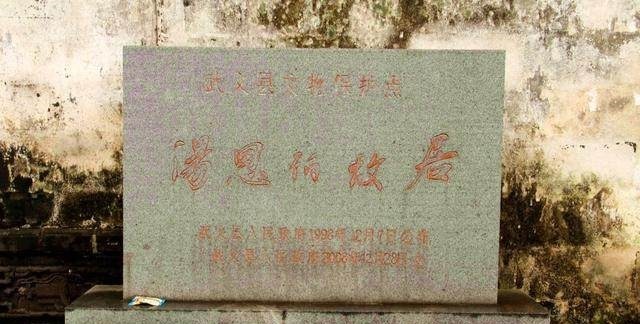 武义县文物保护点
湯恩伯故居
武义县人民政府1998年12月7日公布
武义县人民政府2008年12月28日立